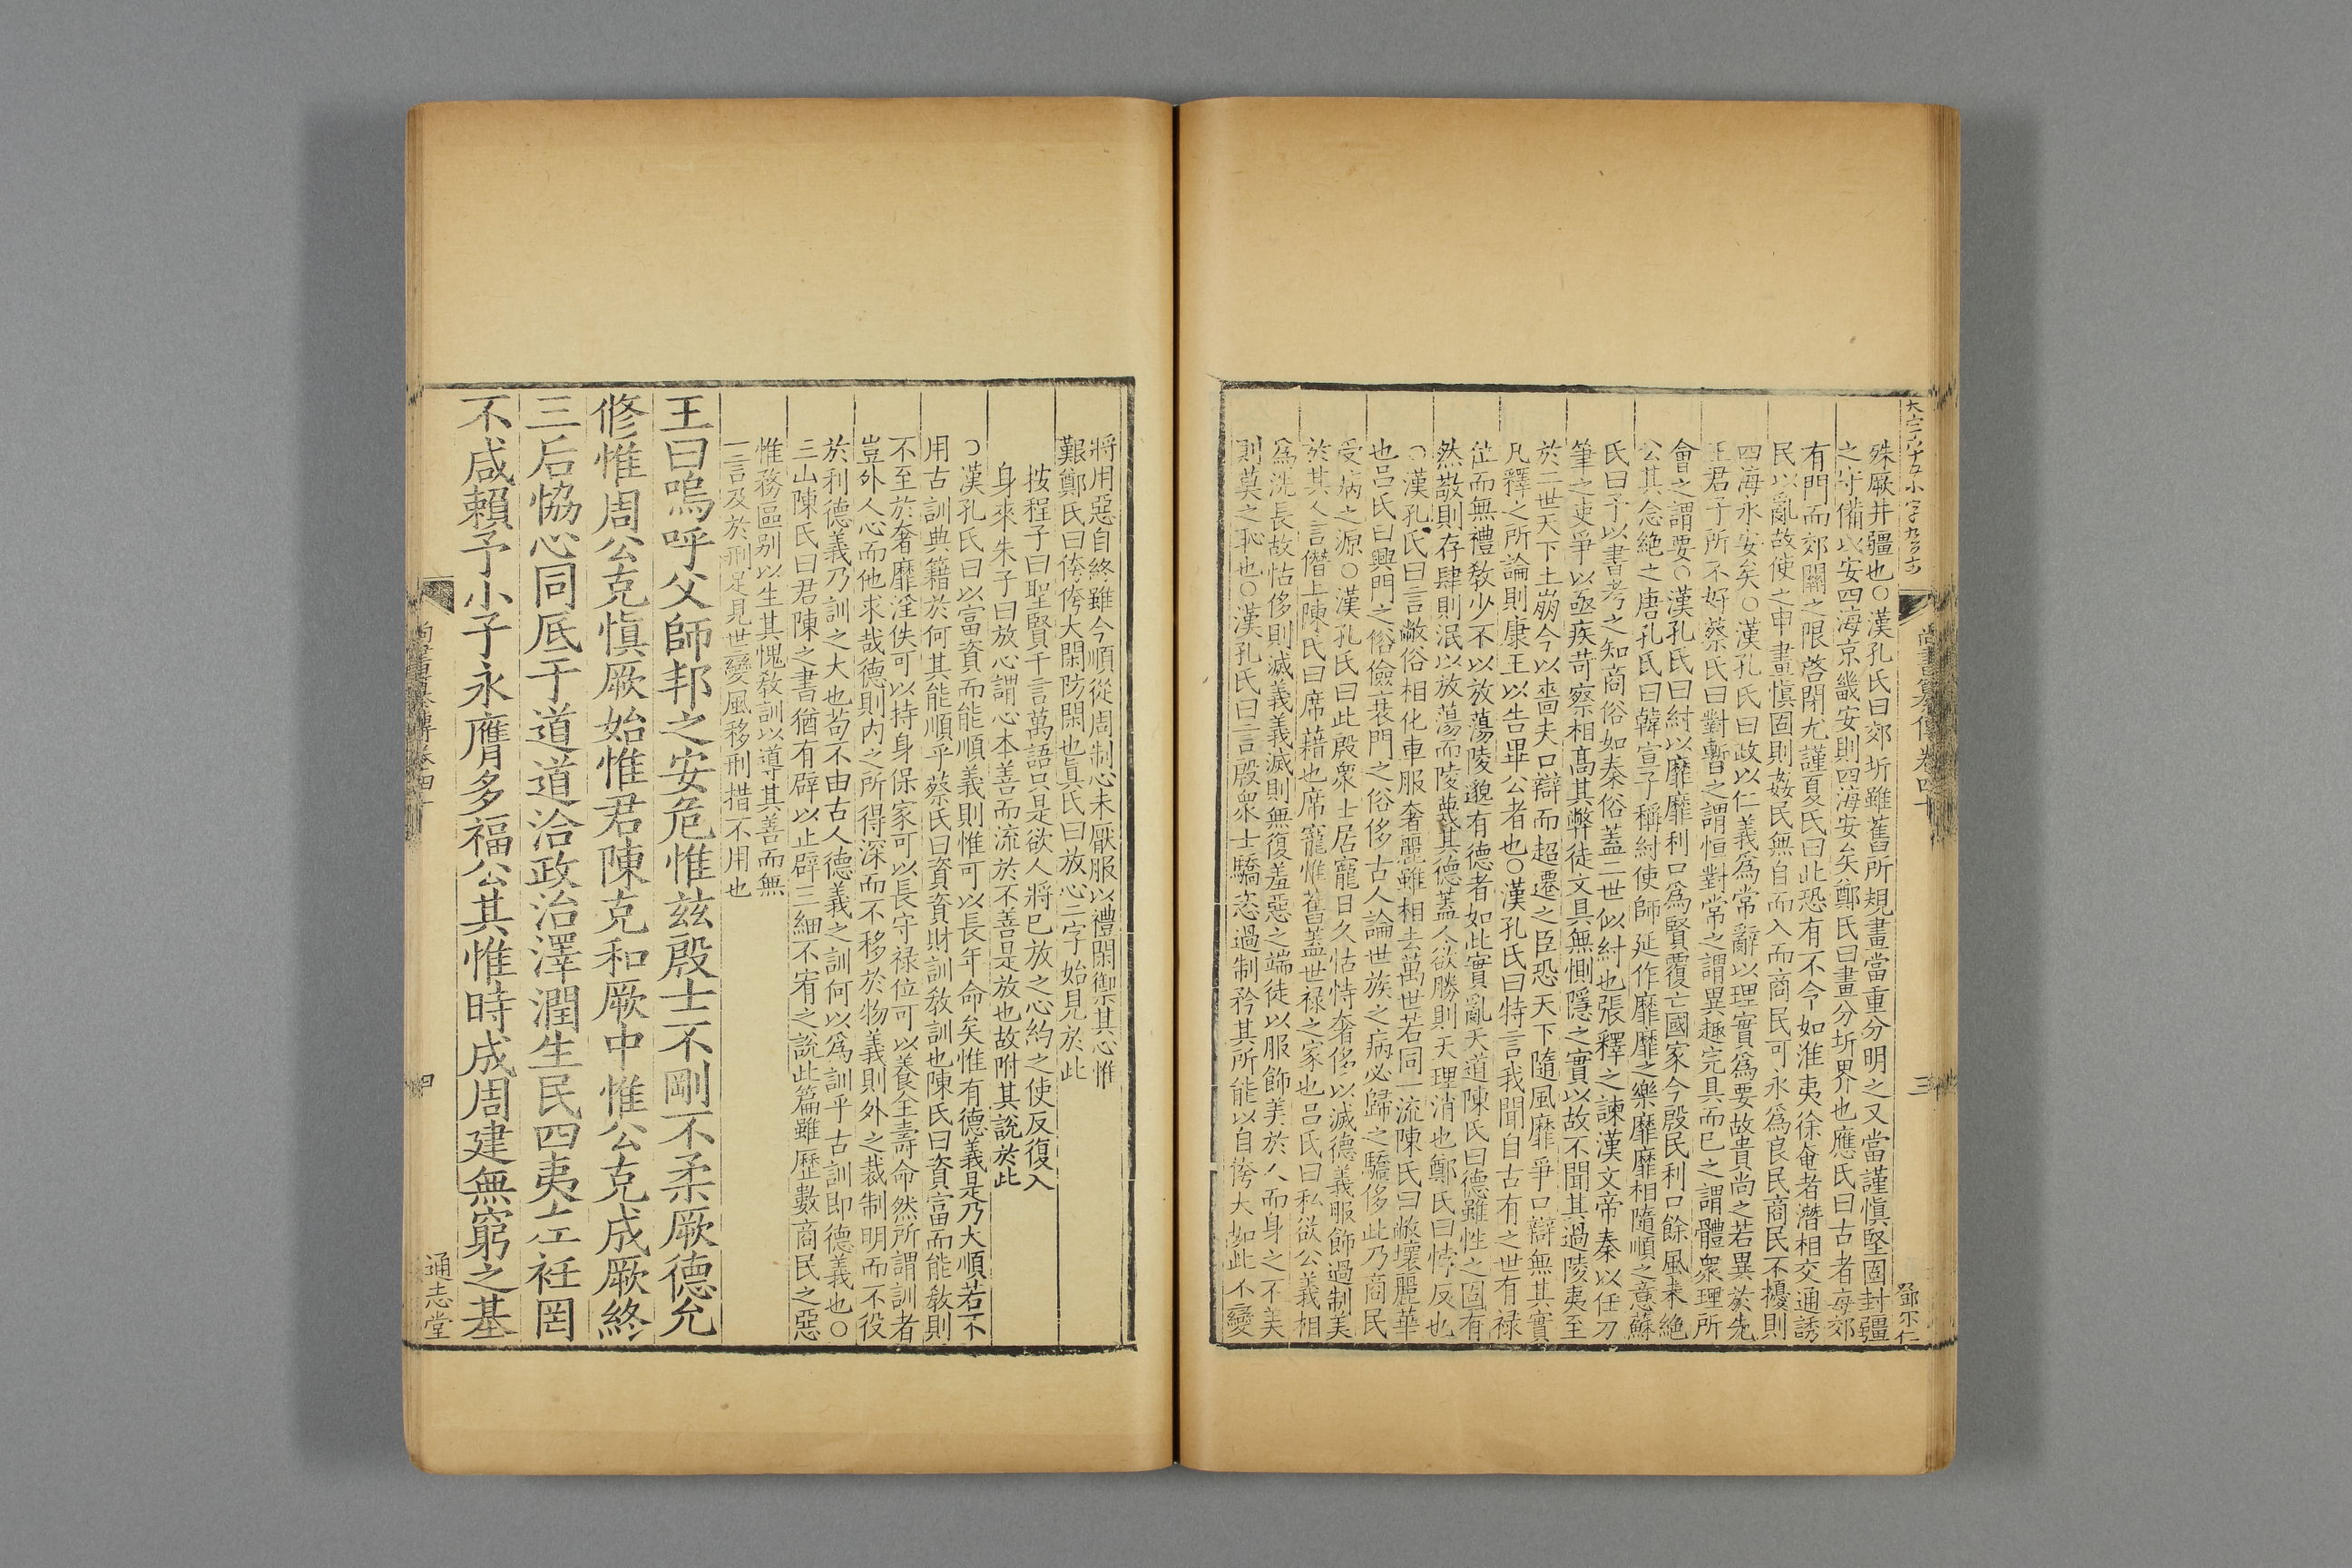 殊厥井疆也○漢孔氏曰郊圻雖舊所規畫當重分明之又當謹慎堅固封疆
之守備以安四海京畿安則四海安矣鄭氏曰畫分圻界也應氏曰古者每郊
有門而郊關之限啓閉尤謹夏氏曰此恐有不令如淮夷徐奄者潛相交通誘
民以亂故使之申畫愼固則姦民無自而入而商民可永爲良民商民不擾則
四海永安矣○漢孔氏曰政以仁義爲常辭以理實爲要故貴尚之若異於先
王君子所不好蔡氏曰對暫之謂恒對常之謂異趣完具而已之謂體衆理所
會之謂要○漢孔氏曰紂以靡靡利口爲賢覆亡國家今殷民利口餘風未絶
公其念絶之唐孔氏曰韓宣子稱紂使師延作靡靡之樂靡靡相隨順之意蘇
氏曰予以書考之知商俗如秦俗蓋二世似紂也張釋之諫漢文帝秦以任刀
筆之吏爭以亟疾苛察相高其弊徒文具無惻隱之實以故不聞其過陵夷至
於二世天下土崩今以嗇夫口辯而超遷之臣恐天下隨風靡爭口辯無其實
凡釋之所論則康王以告畢公者也○漢孔氏曰特言我聞自古有之世有禄
位而無禮敎少不以放蕩陵邈有德者如此實亂天道陳氏曰德雖性之固有
然敬則存肆則泯以放蕩而陵蔑其德蓋人欲勝則天理消也鄭氏曰悖反也
○漢孔氏曰言敝俗相化車服奢麗雖相去萬世若同一流陳氏曰敝壞麗華
也吕氏曰興門之俗儉衰門之俗侈古人論世族之病必歸之驕侈此乃商民
受病之源○漢孔氏曰此殷衆士居寵日久怙恃奢侈以滅德義服飾過制美
於其人言僭上陳氏曰席藉也席寵惟舊蓋世禄之家也吕氏曰私欲公義相
爲洗長故怙侈則滅義義滅則無復羞惡之端徒以服飾美於人而身之不美
則莫之恥也○漢孔氏曰言殷衆士驕恣過制矜其所能以自侉大如此不變
大字六十五小字九百六
尚書纂傳卷四十
三
鄧尔仁
將用惡自終雖今順從周制心未厭服以禮閑禦其心惟
艱鄭氏曰侉侉大閑防閑也眞氏曰放心二字始見於此
按程子曰聖賢千言萬語只是欲人將已放之心約之使反復入
身來朱子曰放心謂心本善而流於不善是放也故附其說於此
○漢孔氏曰以富資而能順義則惟可以長年命矣惟有德義是乃大順若不
用古訓典籍於何其能順乎蔡氏曰資資財訓敎訓也陳氏曰資富而能敎則
不至於奢靡淫佚可以持身保家可以長守禄位可以養全壽命然所謂訓者
豈外人心而他求哉德則内之所得深而不移於物義則外之裁制明而不役
於利德義乃訓之大也苟不由古人德義之訓何以爲訓乎古訓即德義也○
三山陳氏曰君陳之書猶有辟以止辟三細不宥之説此篇雖歷數商民之惡
惟務區别以生其愧敎訓以導其善而無
一言及於刑足見世變風移刑措不用也
王曰嗚呼父師邦之安危惟兹殷士不剛不柔厥德允
修惟周公克愼厥始惟君陳克和厥中惟公克成厥終
三后恊心同厎于道道洽政治澤潤生民四夷左衽罔
不咸賴予小子永膺多福公其惟時成周建無窮之基
尚書纂傳卷四十
四
通志堂